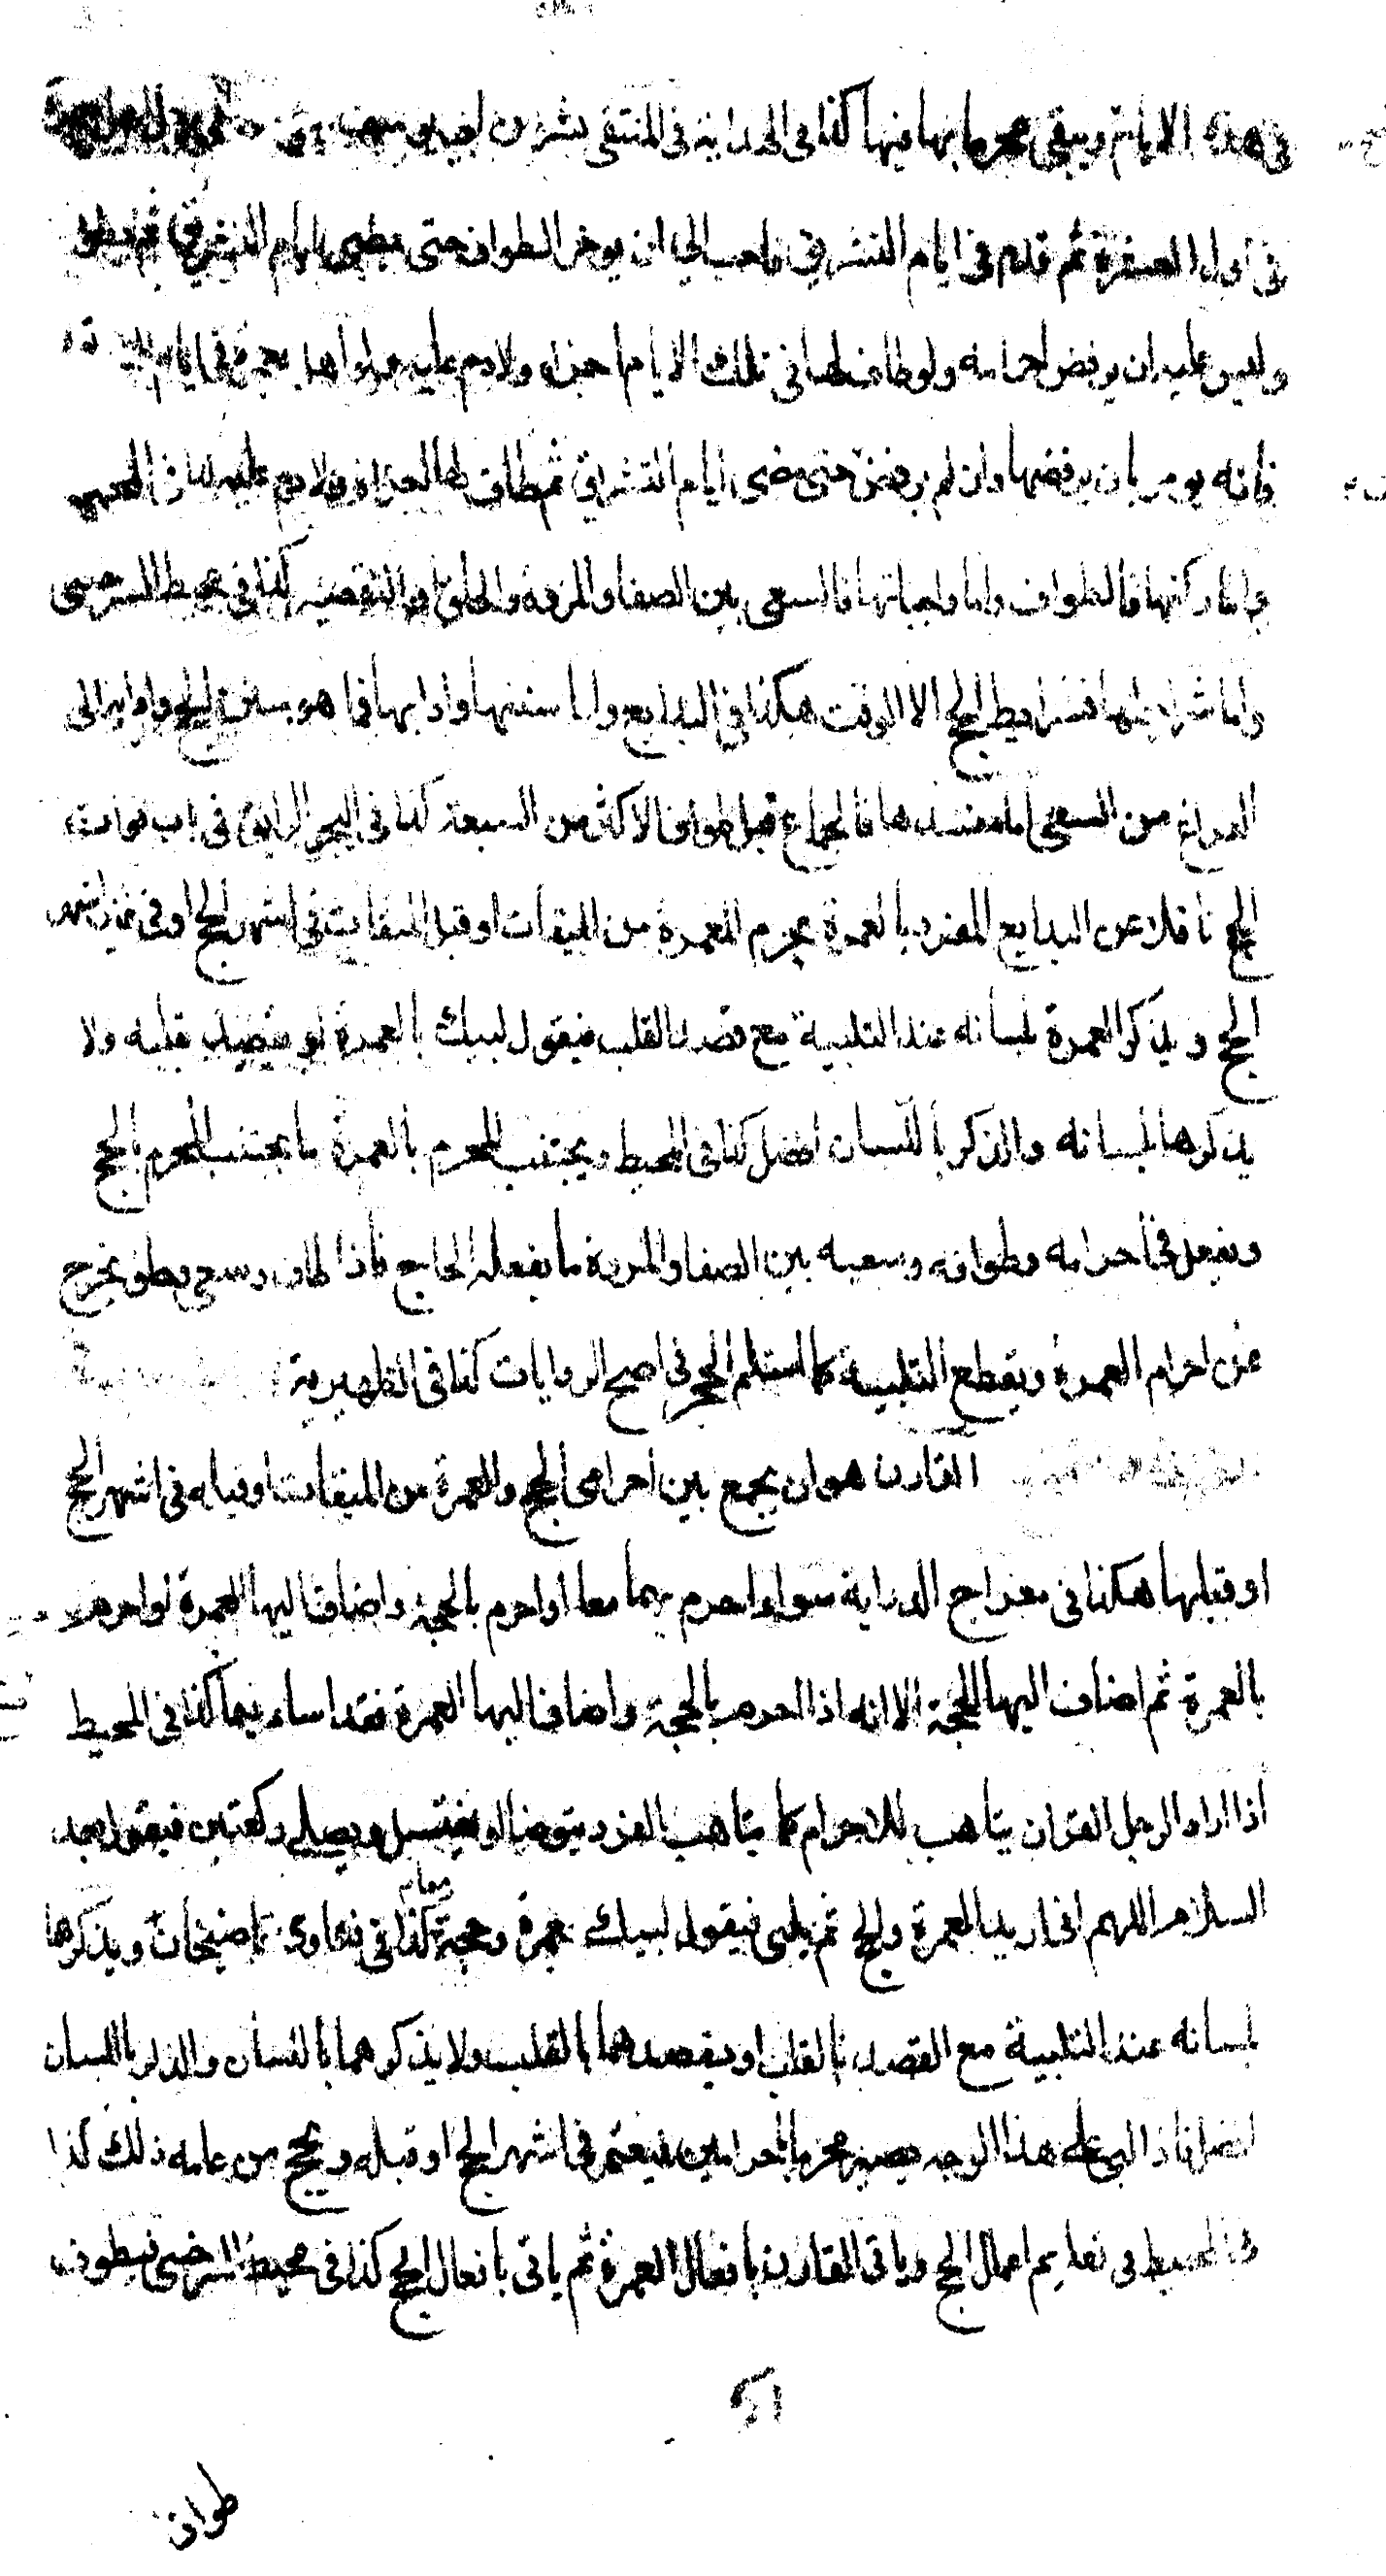 في هذه الايام ويبقى محرما بها فيها كذا في الهداية في المنتقى بشر عن ابي يوسف
في اول العشرة ثم قدم في ايام التشريق فاحب الي ان يوخر الطواف حتى يمضي ايام التشريق ثم يطوف
وليس عليه ان يرفض احرامه ولو طاف لها في تلك الايام اجزاه ولا دم عليه ولو اهل بعمرة في ايام
فانه يومر بان يرفضها وان لم يرفض حتى مضى ايام التشريق ثم طاف لها اجزاه ولا دم عليه كذا في المحيط
واما ركنها فالطواف واما واجباتها فالسعي بين الصفا والمروة والحلق او التقصير كذا في محيط السرخسي
واما شرايطها فشرايط الحج الا الوقت هكذا في البدايع واما سننها وادابها فما هو سنن الحج وادابه الى
الفراغ من السعي اما مفسدها فالجماع قبل طواف الاكثر من السبعة كذا في البحر الرايق في باب فوات
الحج ناقلا عن البدايع المفرد بالعمرة يحرم للعمرة من الميقات او قبل الميقات في اشهر الحج او في غير اشهر
الحج ويذكر العمرة بلسانه عند التلبية مع قصد القلب فيقول لبيك بالعمرة او يقصد بقلبه ولا
يذكرها بلسانه والذكر باللسان افضل كذا في المحيط ويجتنب المحرم بالعمرة ما يجتنب المحرم بالحج
ويفعل في احرامه وطوافه وسعيه بين الصفا والمروة ما يفعله الحاج فاذا طاف وسعى وحلق يخرج
عن احرام العمرة ويقطع التلبية كما استلم الحجر في اصح الروايات كذا في الظهيرية
القارن هو ان يجمع بين احرامي الحج والعمرة من الميقات او قبله في اشهر الحج
او قبلها هكذا في معراج الدراية سواء احرم بهما معا او احرم بالحجة واضاف اليها العمرة او احرم
بالعمرة ثم اضاف اليها الحجة الا انه اذا احرم بالحجة واضاف اليها العمرة فقد اساء فيما كذا في المحيط
اذا اراد الرجل القران يتاهب للاحرام كما يتاهب المفرد يتوضا او يغتسل ويصلي ركعتين فيقول بعد
السلام اللهم اني اريد العمرة والحج ثم يلبي فيقول لبيك بعمرة وحجة معا كذا في فتاوى قاضيخان ويذكرها
بلسانه عند التلبية مع القصد بالقلب او يقصدهما بالقلب ولا يذكرهما باللسان والذكر باللسان
افضل فاذا لبى على هذا الوجه يصير محرما باحرامين فيعتمر في اشهر الحج او قبله ويحج من عامه ذلك كذا
في المحيط في تعليم اعمال الحج وياتي القارن بافعال العمرة ثم ياتي بافعال الحج كذا في محيط السرخسي فيطوف
طواف